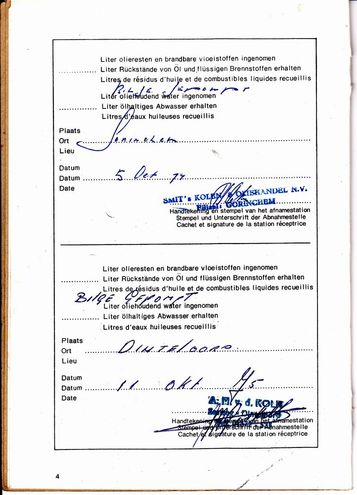 Liter olieresten en brandbare vloeistoffen ingenomen
Liter Rückstände von Öl und flüssigen Brennstoffen erhalten
Litres de résidus d'huile et de combustibles liquides recueillis
Bilge gepompt
Liter oliehoudend water ingenomen
Liter ölhaltiges Abwasser erhalten
Litres d'eaux huileuses recueillis
Plaats
Ort Gorinchem
Lieu
Datum
Datum 5 Oct 74
Date
SMIT's KOLEN & OLIEHANDEL N.V.
GORINCHEM
Handtekening en stempel van het afnamestation
Stempel und Unterschrift der Abnahmestelle
Cachet et signature de la station réceptrice
Liter olieresten en brandbare vloeistoffen ingenomen
Liter Rückstände von Öl und flüssigen Brennstoffen erhalten
Litres de résidus d'huile et de combustibles liquides recueillis
BILGE GEPOMPT
Liter oliehoudend water ingenomen
Liter ölhaltiges Abwasser erhalten
Litres d'eaux huileuses recueillis
Plaats
Ort DINTELOORD
Lieu
Datum
Datum 11 OKT 75
Date
A. M. v. d. KOLK
Handtekening en stempel van het afnamestation
Stempel und Unterschrift der Abnahmestelle
Cachet et signature de la station réceptrice
4